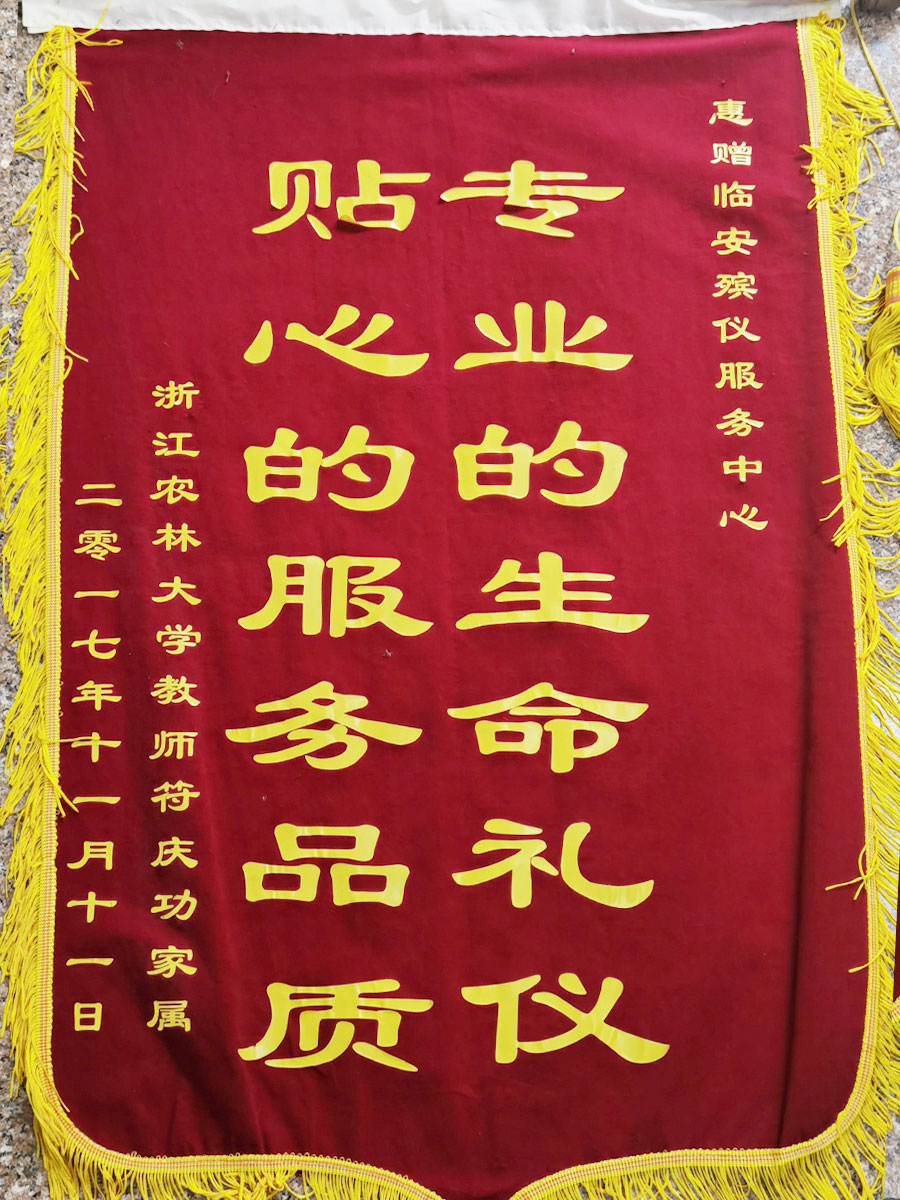 惠赠临安殡仪服务中心
专业的生命礼仪
贴心的服务品质
浙江农林大学教师符庆功家属
二零一七年十一月十一日